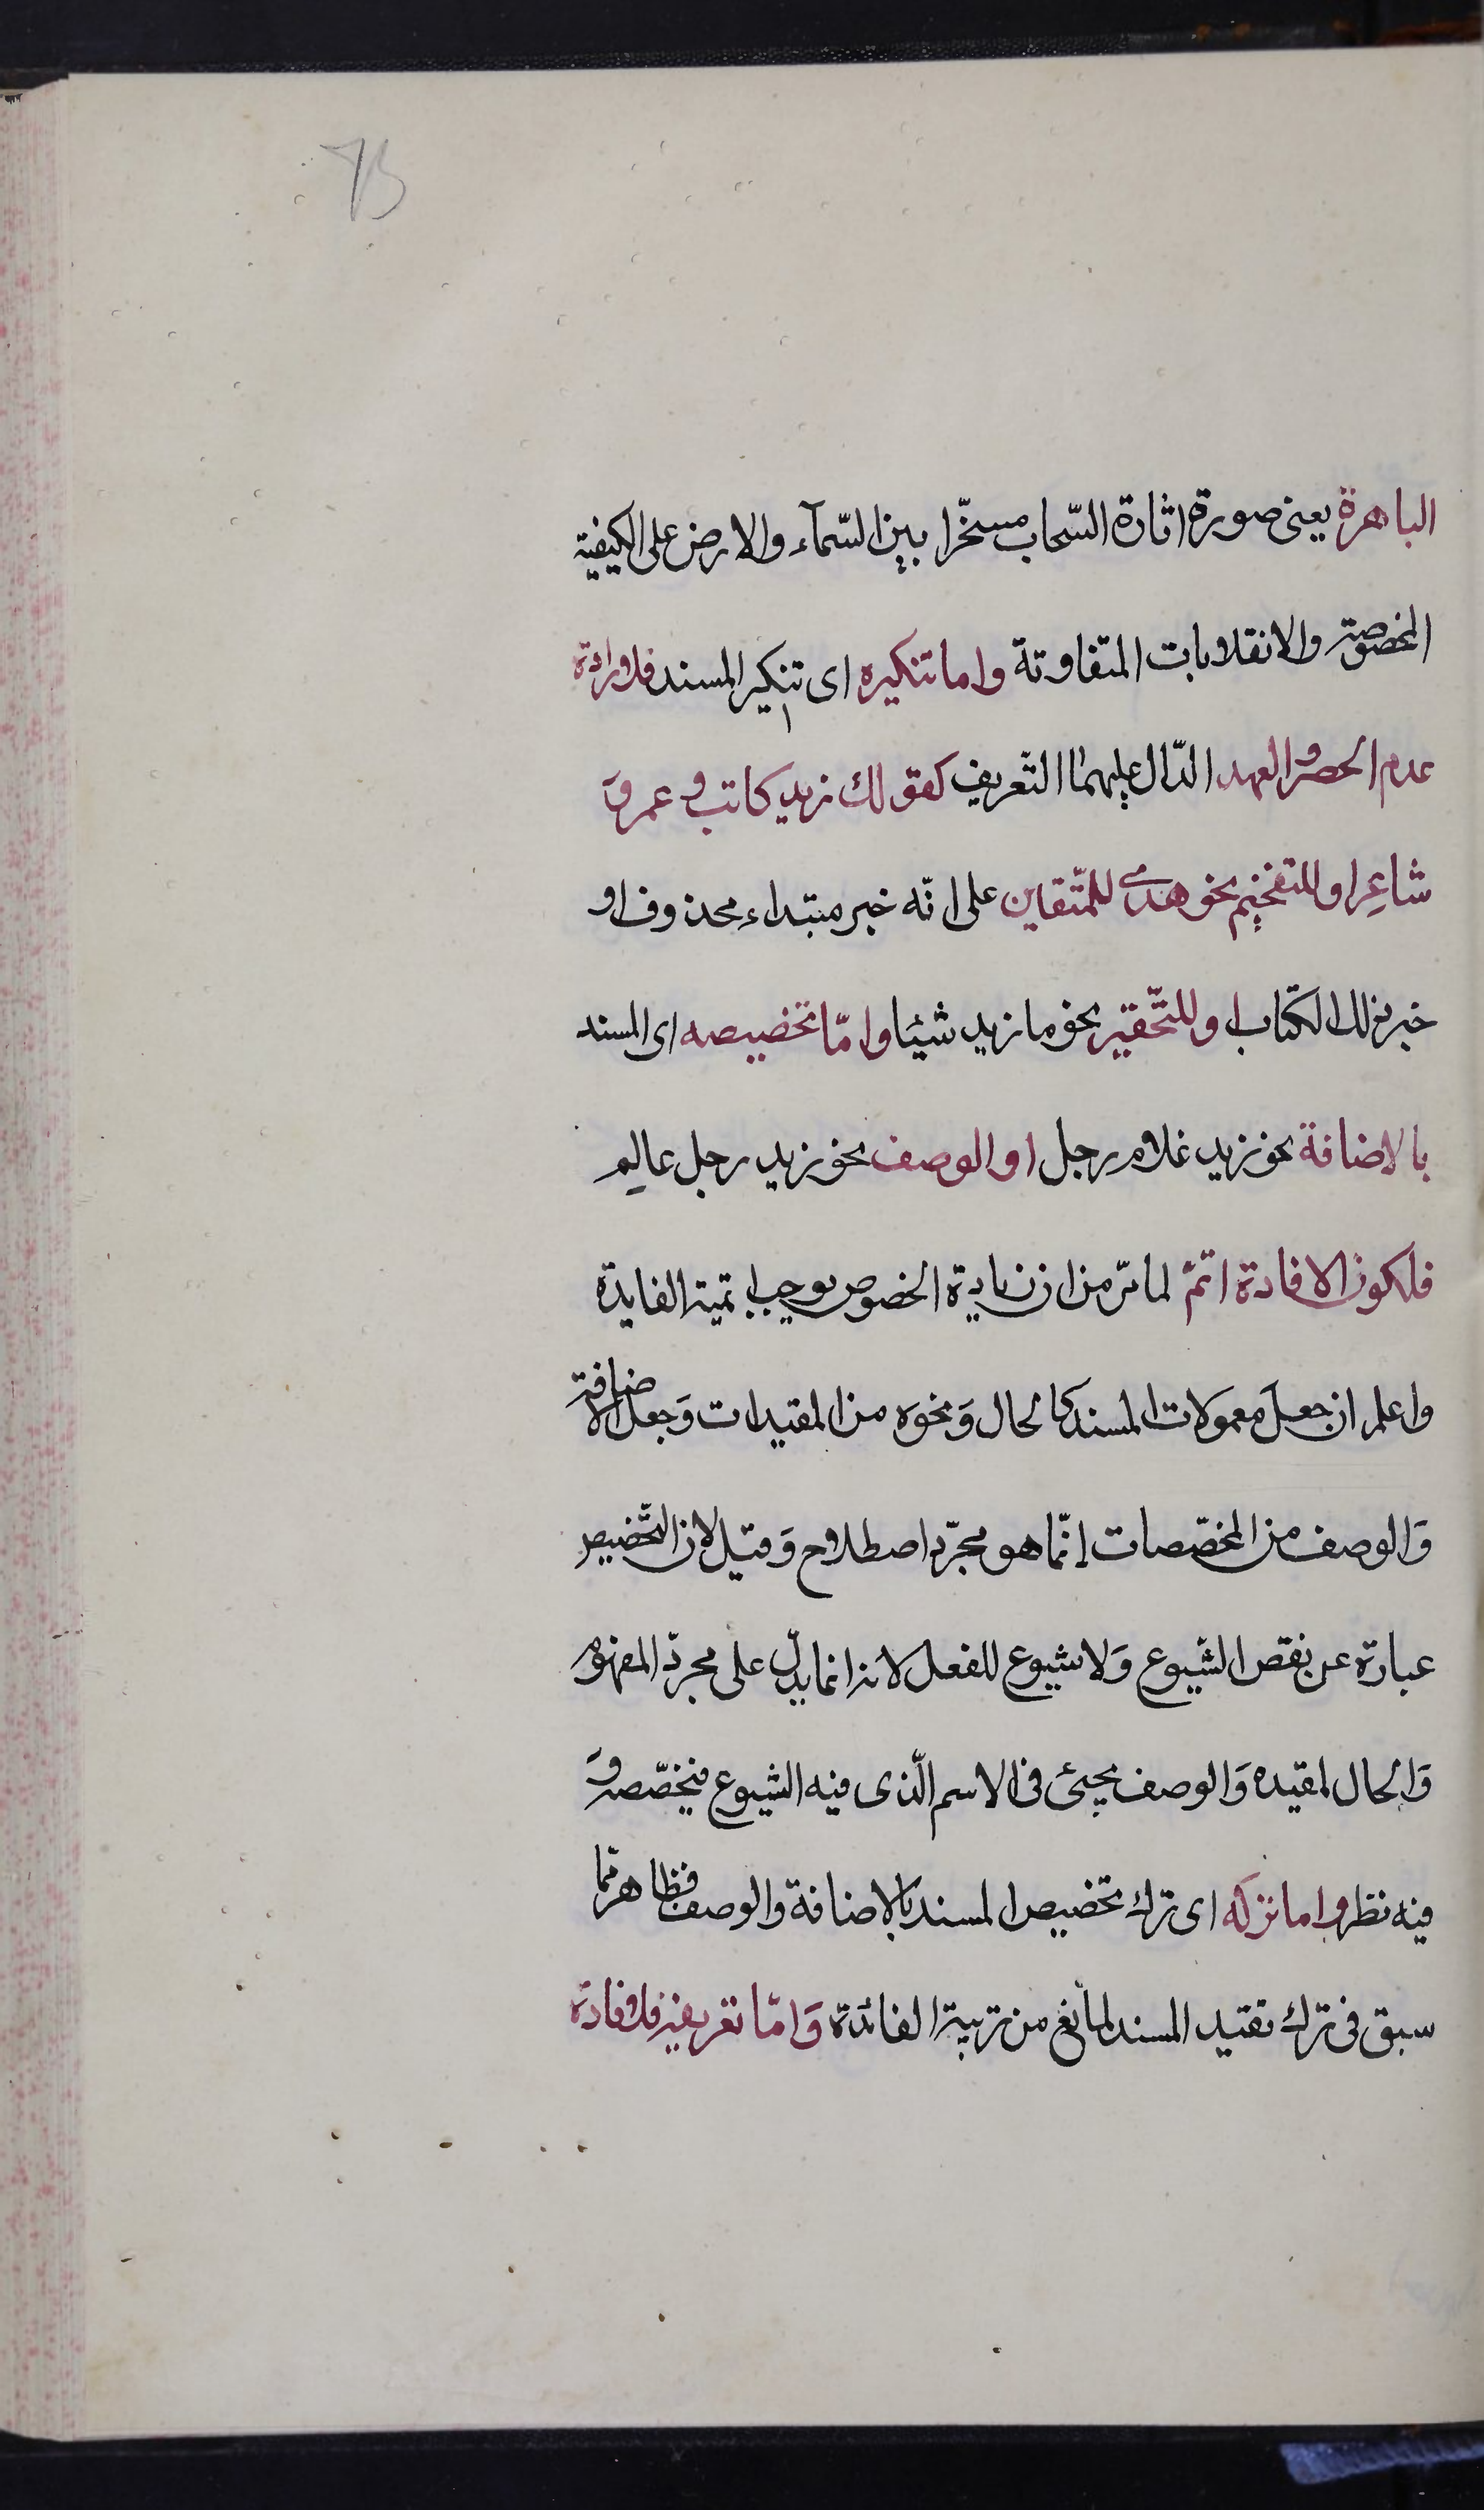 73
الباهرة يعنى صورة اثارة السّحاب مسخّرا بين السّمآء والارض على الكيفية
المخصوصة والانقلابات المتفاوتة واما تنكيره اى تنكير المسند فلارادة
عدم الحصر والعهد الدّال عليهما التّعريف كقولك زيد كاتب و عمرو
شاعر او للتفخيم نحو هدى للمتّقين على انّه خبر مبتداء محذوف او
خبر ذلك الكتاب او للتّحقير نحو ما زيد شيئا وامّا تخصيصه اى المسند
بالاضافة نحو زيد غلام رجل او الوصف نحو زيد رجل عالم
فلكون الافادة اتمّ لما مرّ من ان زيادة الخصوص يوجب اتمية الفايدة
واعلم ان جعل معمولات المسند كالحال وَنحوه من المقيدات وَجعل الاضافة
وَالوصف من المخصّصات إنّما هو مجرّد اصطلاح وَقيل لان التّخصيص
عبارة عن نقص الشّيوع وَلا شيوع للفعل لانه انما يدلّ على مجرّد المفهوم
وَالحال لمقيده وَالوصف يجيئ فى الاسم الّذى فيه الشيوع فيخصّصه وَ
فيه نظر واما تركه اى ترك تخصيص المسند بالاضافة والوصف فظاهر ممّا
سبق فى ترك تقتيد المسند لمانع من تربية الفائدة وَامّا تعريفه فلافادة